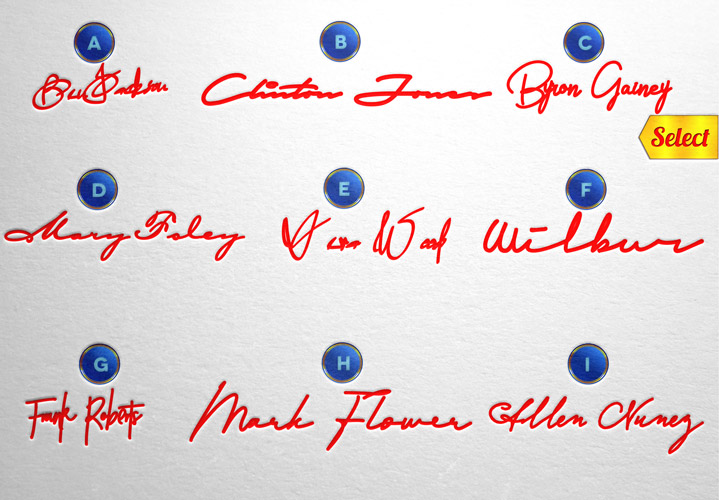 A B C
Bill Jackson Clinton Jones Byron Gainey
Select
D E F
Mary Foley Wood Wilbur
G H I
Frank Roberts Mark Flower Allen Nunez